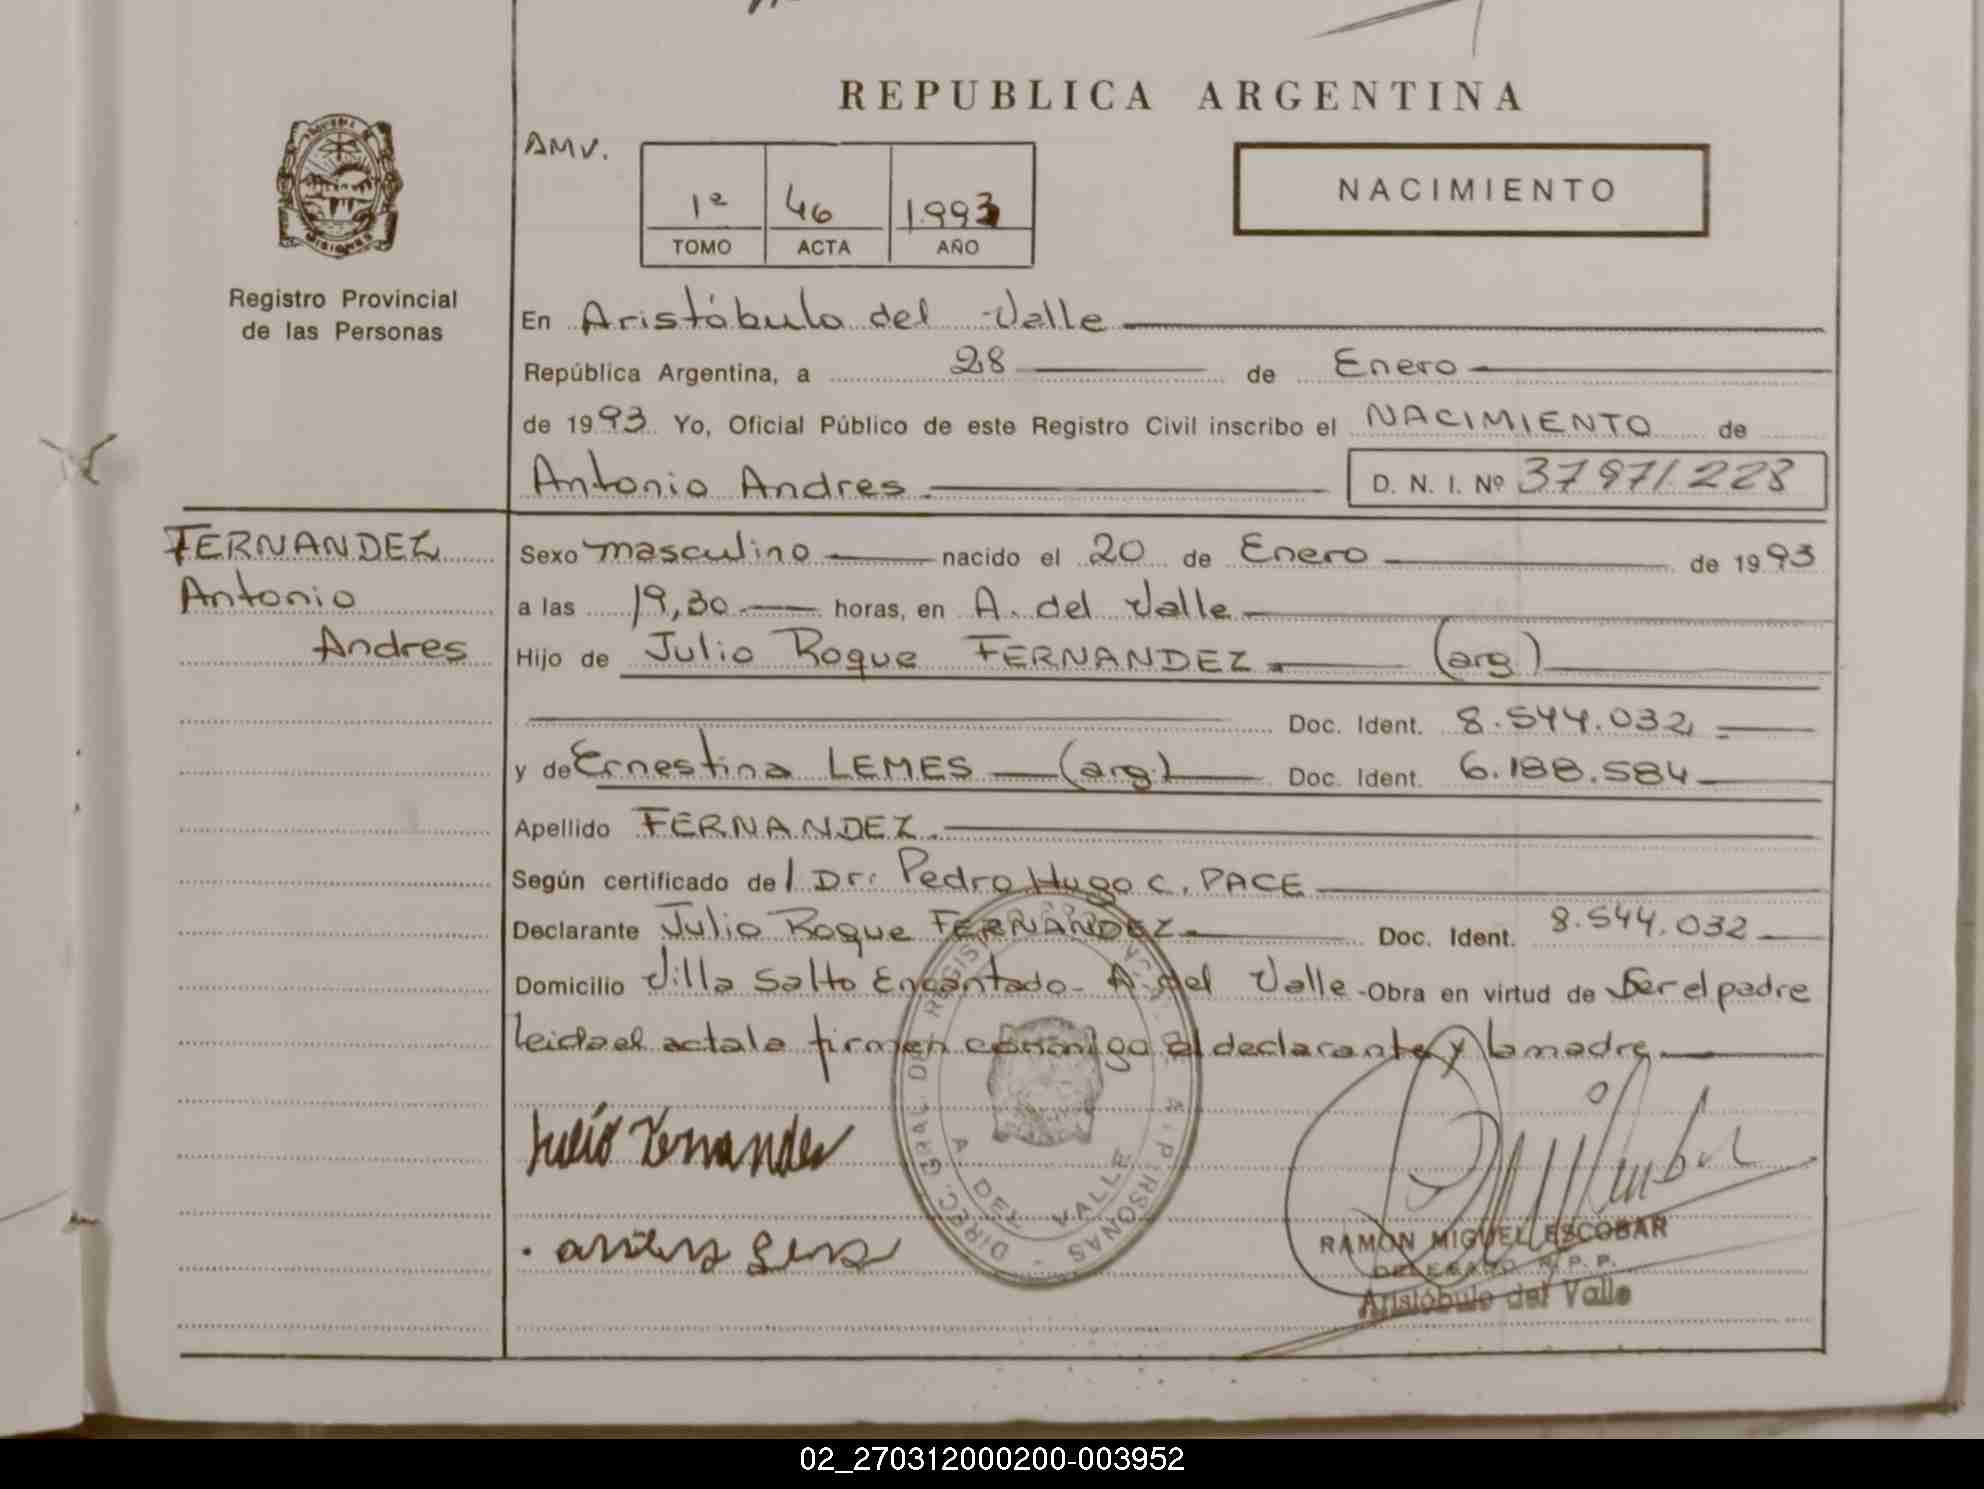 REPUBLICA ARGENTINA
MISIONES
Registro Provincial
de las Personas
AMV.
1ª 46 1993
TOMO ACTA AÑO
NACIMIENTO
En Aristóbulo del Valle
República Argentina, a 28 de Enero
de 1993 Yo, Oficial Público de este Registro Civil inscribo el NACIMIENTO de
Antonio Andres D. N. I. Nº 37971.228
FERNANDEZ
Antonio
Andres
Sexo masculino nacido el 20 de Enero de 1993
a las 19,30 horas, en A. del Valle
Hijo de Julio Roque FERNANDEZ (arg.)
Doc. Ident. 8.544.032
y de Ernestina LEMES (arg.) Doc. Ident. 6.188.584
Apellido FERNANDEZ
Según certificado del Dr: Pedro Hugo C. PACE
Declarante Julio Roque FERNANDEZ Doc. Ident. 8.544.032
Domicilio Villa Salto Encantado- A. del Valle - Obra en virtud de Ser el padre
leida el acta la firman conmigo el declarante y la madre
Julio Fernandez
A DEL VALLE
RAMON MIGUEL ESCOBAR
DELEGADO R. P. P.
Aristóbulo del Valle
02_270312000200-003952